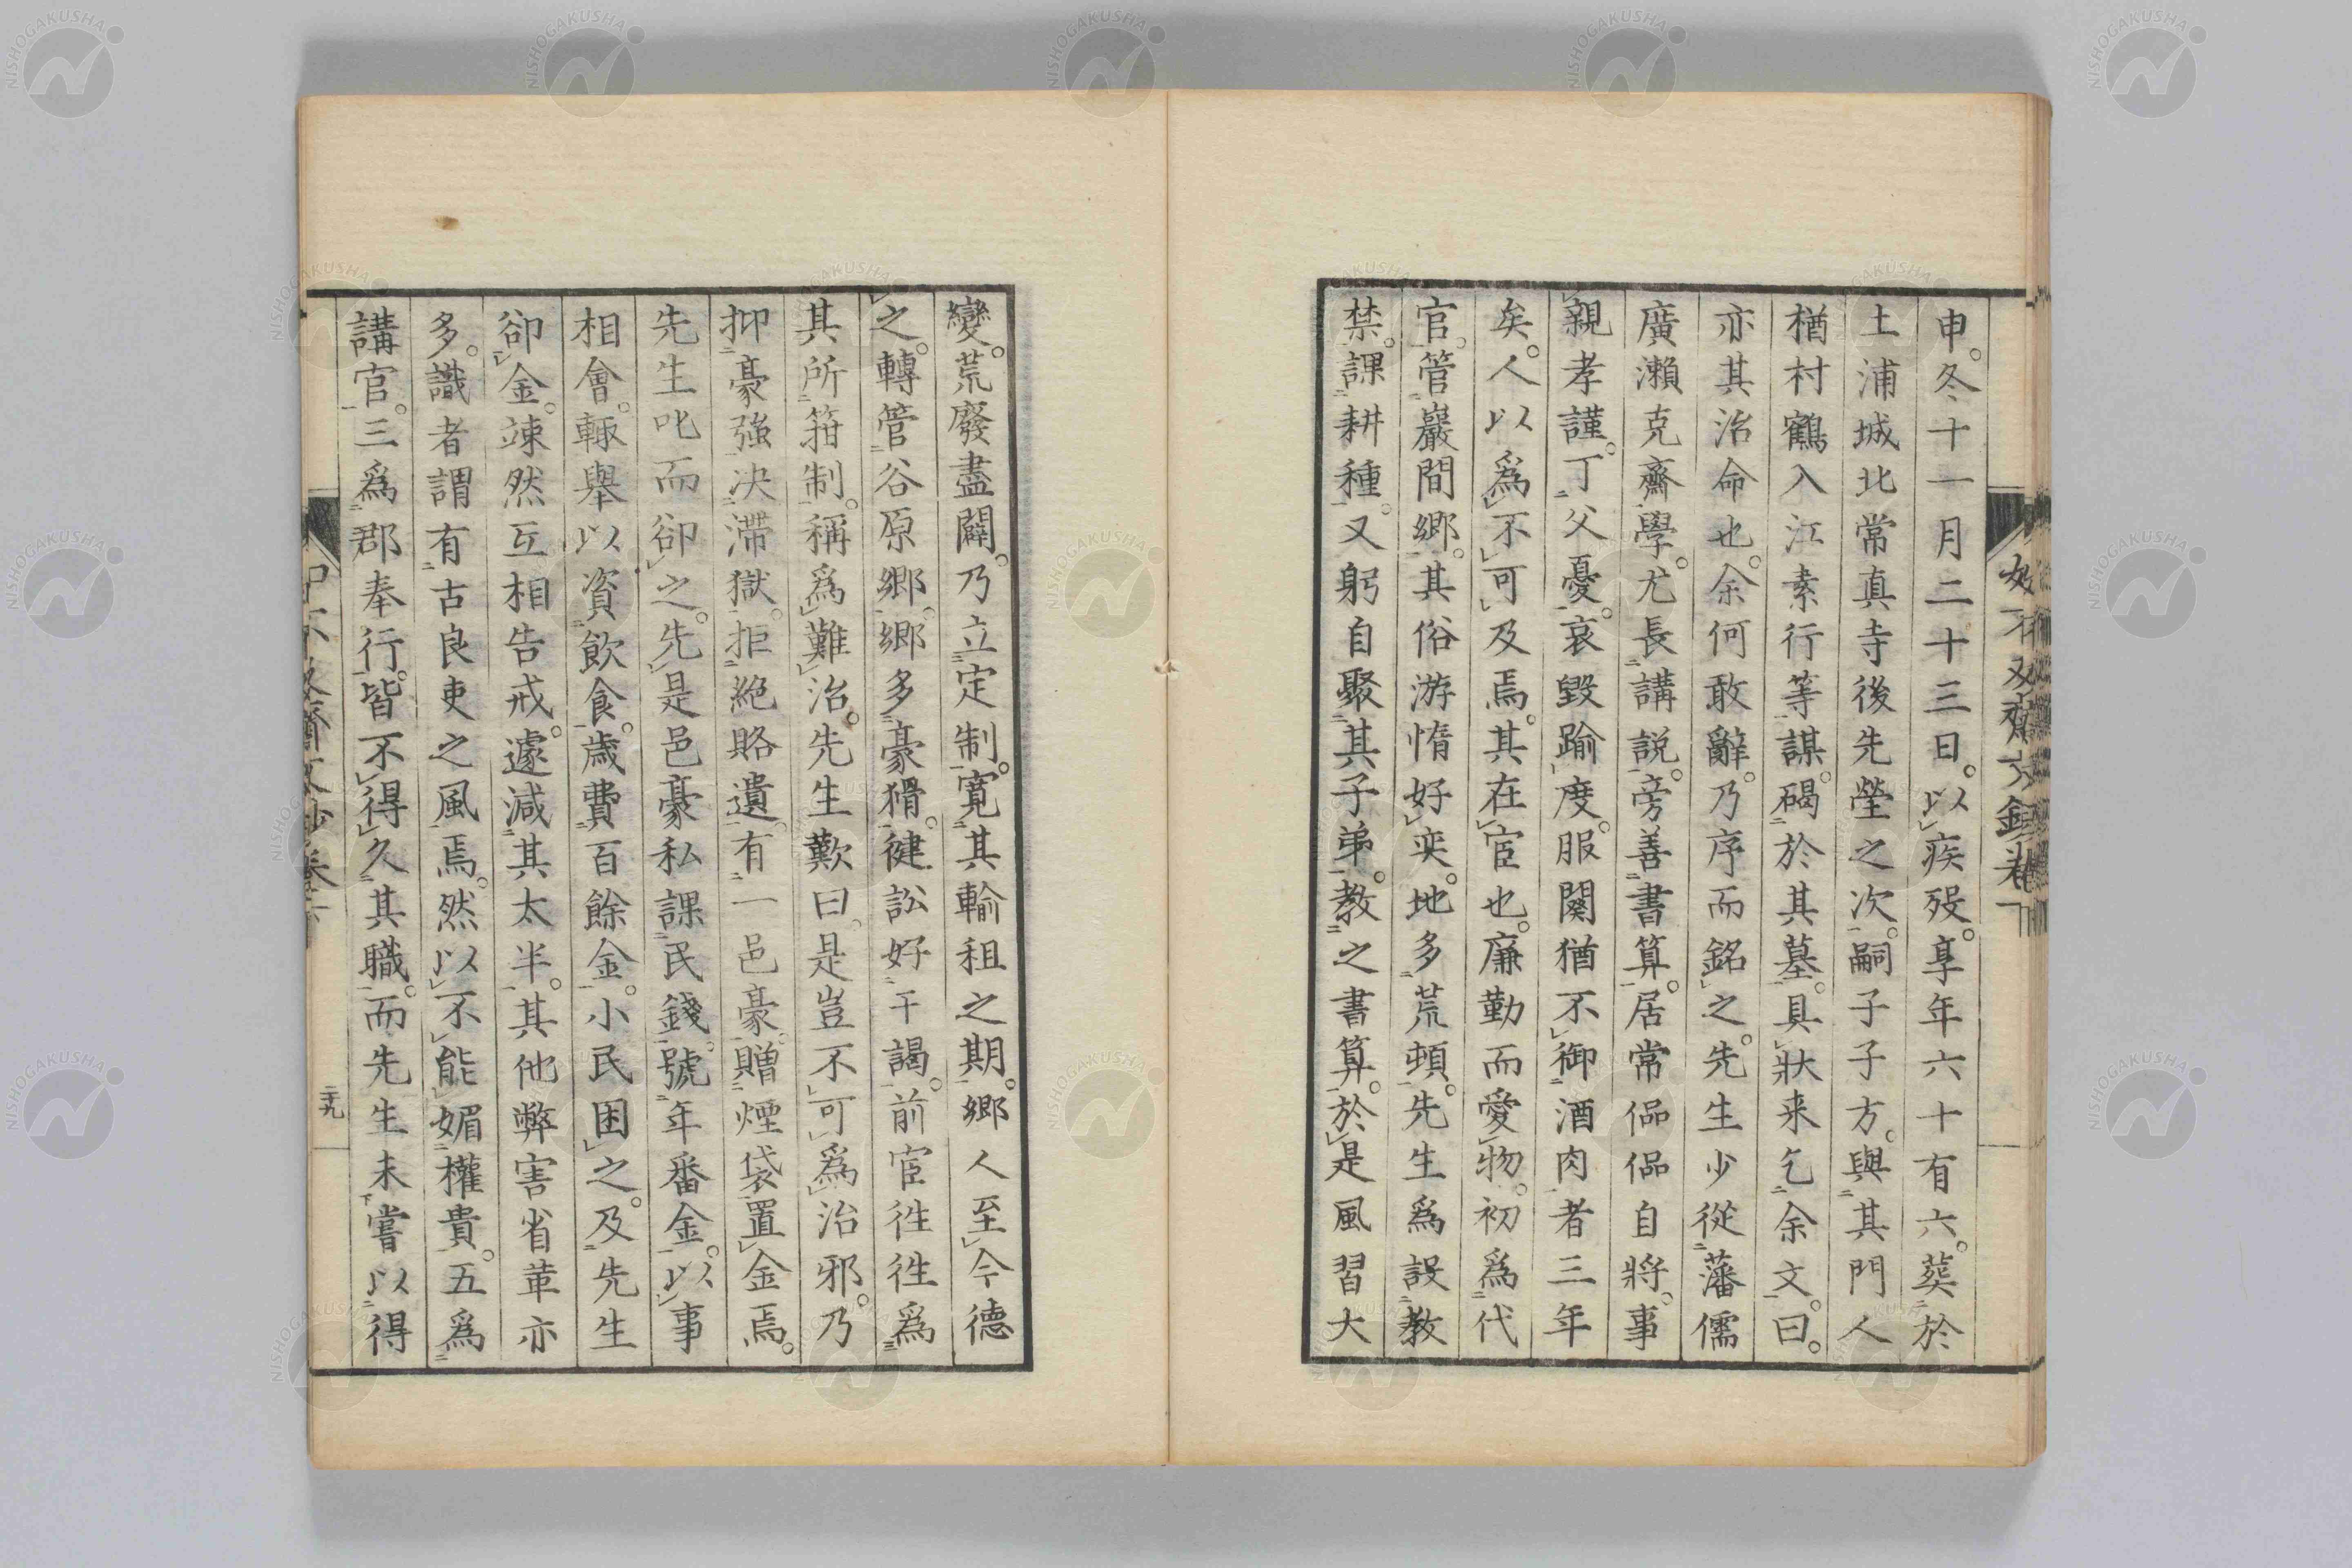 申。冬十一月二十三日。以疾歿。享年六十有六。葬於
土浦城北常真寺後先塋之次。嗣子子方。與其門人
楢村鶴入江素行等謀。碣於其墓。具狀来乞余文。曰。
亦其治命也。余何敢辭。乃序而銘之。先生少從藩儒
廣瀨克齋學。尤長講説。旁善書算。居常偘偘自將。事
親孝謹。丁父憂。哀毀踰度。服闋猶不御酒肉者三年
矣。人以為不可及焉。其在宦也。廉勤而愛物。初為代
官。管巖間郷。其俗游惰好奕。地多荒頓。先生為設教
禁。課耕種。又躬自聚其子弟。教之書算。於是風習大
變。荒廢盡闢。乃立定制。寛其輸租之期。郷人至今德
之。轉管谷原郷。郷多豪猾。健訟好干謁。前宦徃徃為
其所箝制。稱為難治。先生歎曰。是豈不可為治邪。乃
抑豪強。决滞獄。拒絶賂遺。有一邑豪。贈煙袋置金焉。
先生叱而卻之。先是邑豪私課民錢。號年番金。以事
相會。輙舉以資飲食。歳費百餘金。小民困之。及先生
卻金。竦然互相告戒。遽減其太半。其他弊害省革亦
多。識者謂有古良吏之風焉。然以不能媚權貴。五為
講官。三為郡奉行。皆不得久其職。而先生未嘗以得
二十九